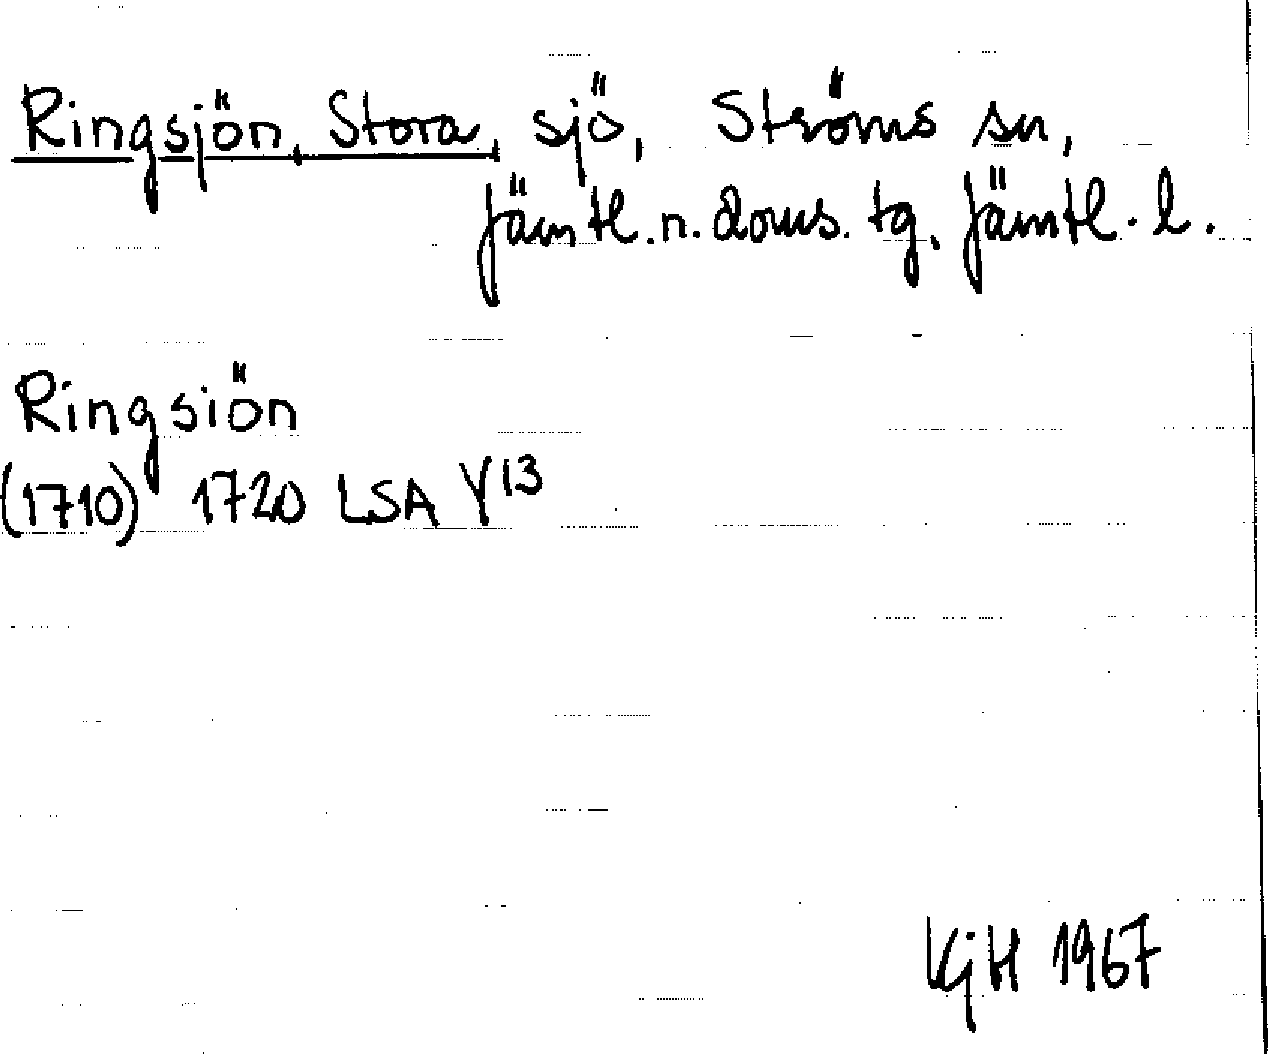 Ringsjön, Stora, sjö, Ströms sn,
Jämtl. n. doms. tg, Jämtl. l.
Ringsiön
(1710) 1720 LSA Y13
KjH 1967